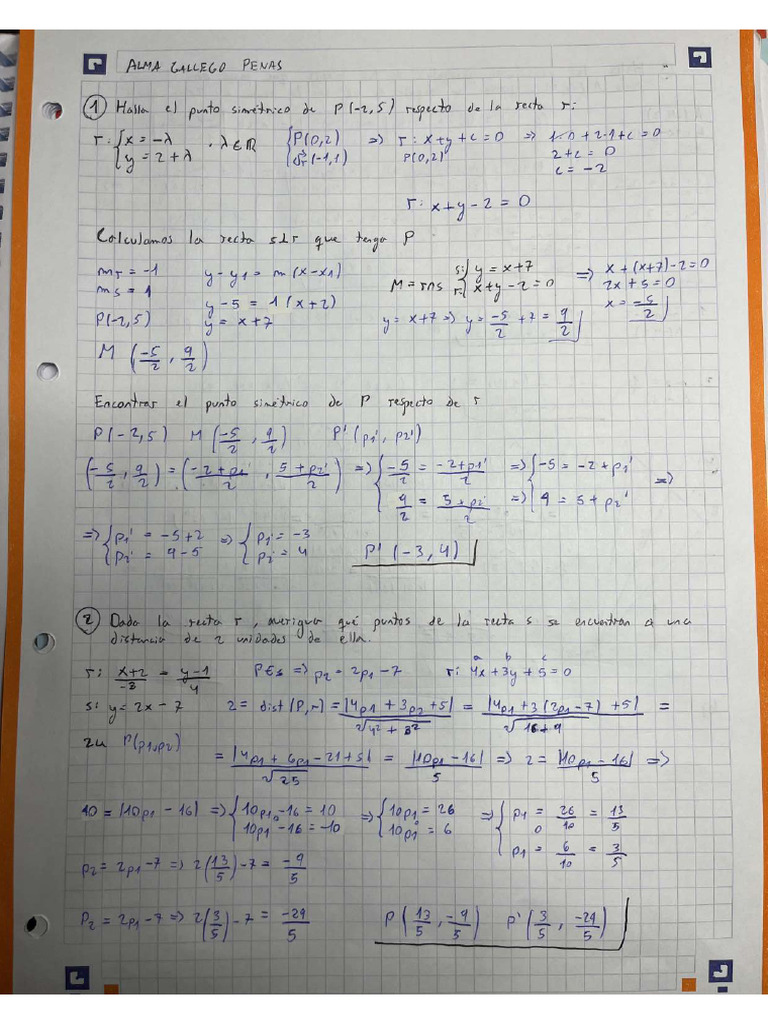 ALMA GALLEGO PENAS
① Halla el punto simétrico de P(-2,5) respecto de la recta r:
r: { x = -λ ; y = 2+λ , λ∈ℝ { P(0,2) ; v⃗r(-1,1) => r: x+y+c=0 P(0,2) => 1·0+2·1+c=0
2+c=0
c=-2
r: x+y-2=0
Calculamos la recta s⊥r que tenga P
mr = -1 y-y1 = m(x-x1) M = r∩s { s: y=x+7 ; r: x+y-2=0 => x+(x+7)-2=0
ms = 1 y-5 = 1(x+2) 2x+5=0
P(-2,5) y = x+7 y=x+7 => y = -5/2 + 7 = 9/2 x = -5/2
M (-5/2, 9/2)
Encontrar el punto simétrico de P respecto de r
P(-2,5) M(-5/2, 9/2) P'(p1', p2')
(-5/2, 9/2) = (-2+p1'/2, 5+p2'/2) => { -5/2 = -2+p1'/2 ; 9/2 = 5+p2'/2 => { -5 = -2+p1' ; => 9 = 5+p2' =>
=> { p1' = -5+2 ; p2' = 9-5 => { p1' = -3 ; p2' = 4 P'(-3,4)
② Dada la recta r, averigua qué puntos de la recta s se encuentran a una
distancia de 2 unidades de ella.
r: x+2/-3 = y-1/4 P∈s => p2 = 2p1-7 r: 4x+3y+5=0 a b c
s: y=2x-7 2 = dist(P,r) = |4p1+3p2+5|/√4²+3² = |4p1+3(2p1-7)+5|/√16+9 =
2u P(p1,p2) = |4p1+6p1-21+5|/√25 = |10p1-16|/5 => 2 = |10p1-16|/5 =>
10 = |10p1-16| => { 10p1-16=10 ; 10p1-16=-10 => { 10p1=26 ; 10p1=6 => { p1 = 26/10 = 13/5 ; o ; p1 = 6/10 = 3/5
p2 = 2p1-7 => 2(13/5)-7 = -9/5
p2 = 2p1-7 => 2(3/5)-7 = -29/5 P(13/5, -9/5) P'(3/5, -29/5)